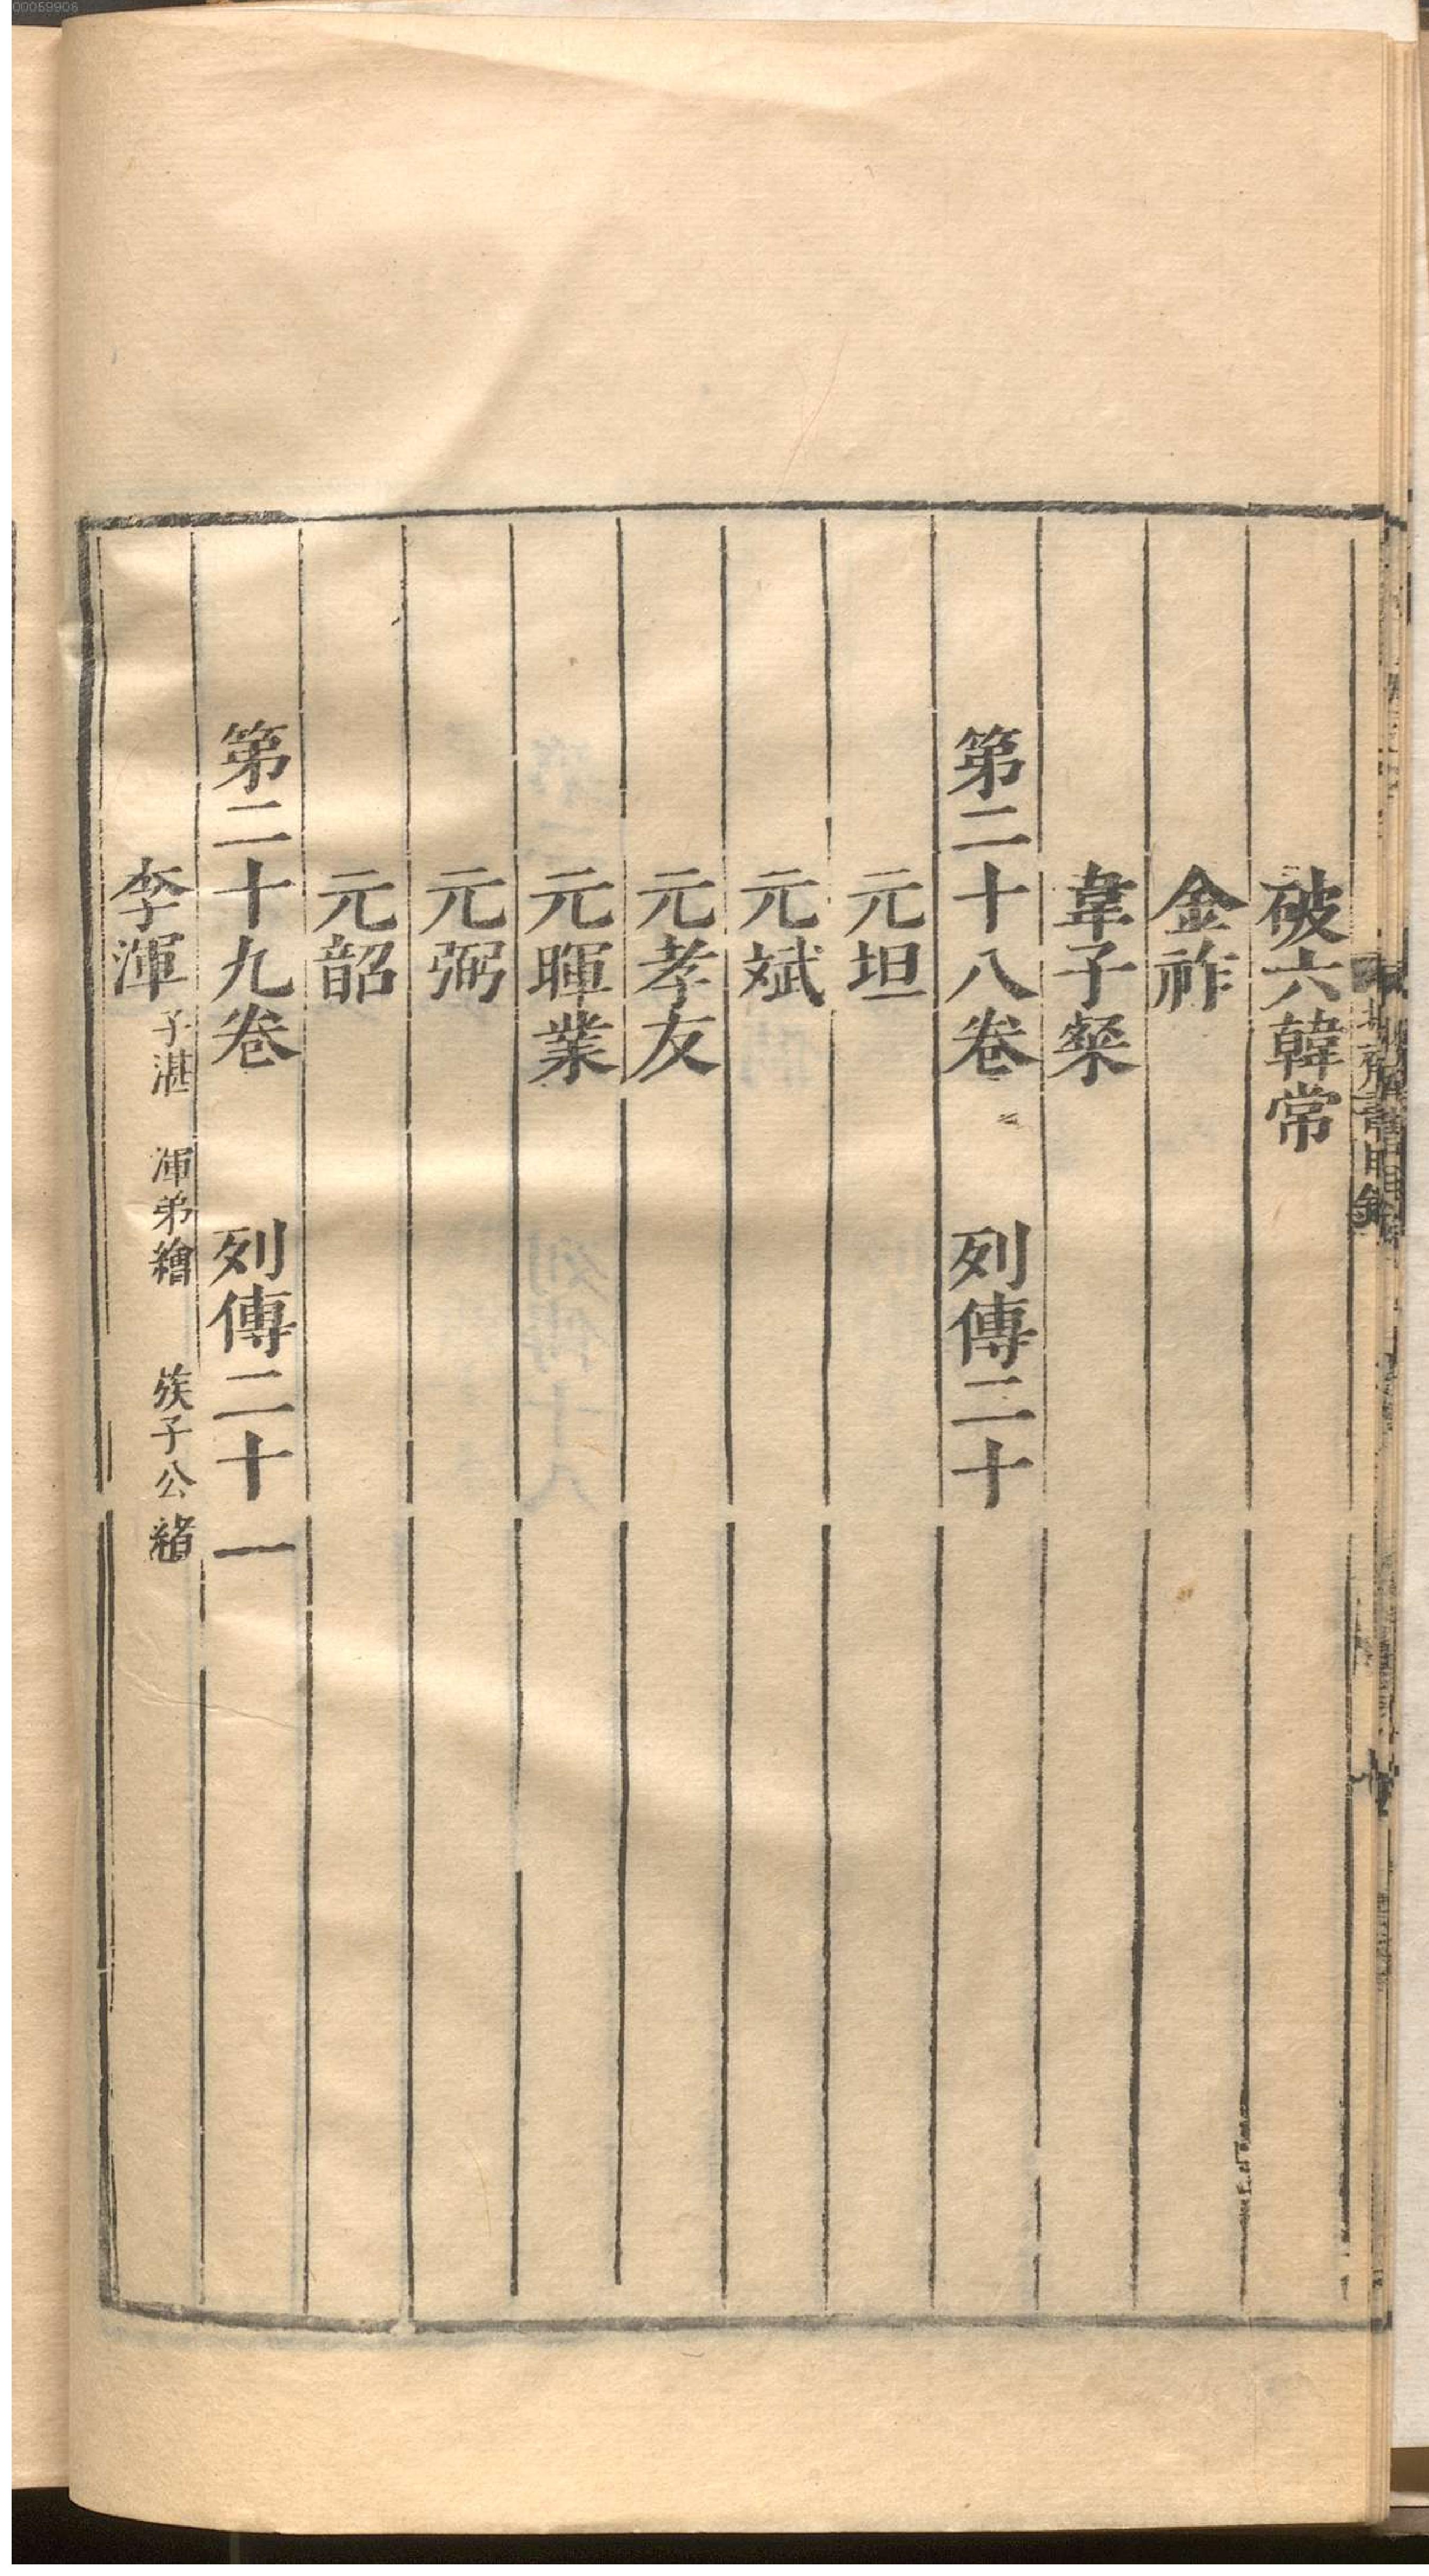 00059906
破六韓常
金祚
韋子粲
第二十八卷　列傳二十
元坦
元斌
元孝友
元暉業
元弼
元韶
第二十九卷　列傳二十一
李渾　子湛　渾弟繪　族子公緒